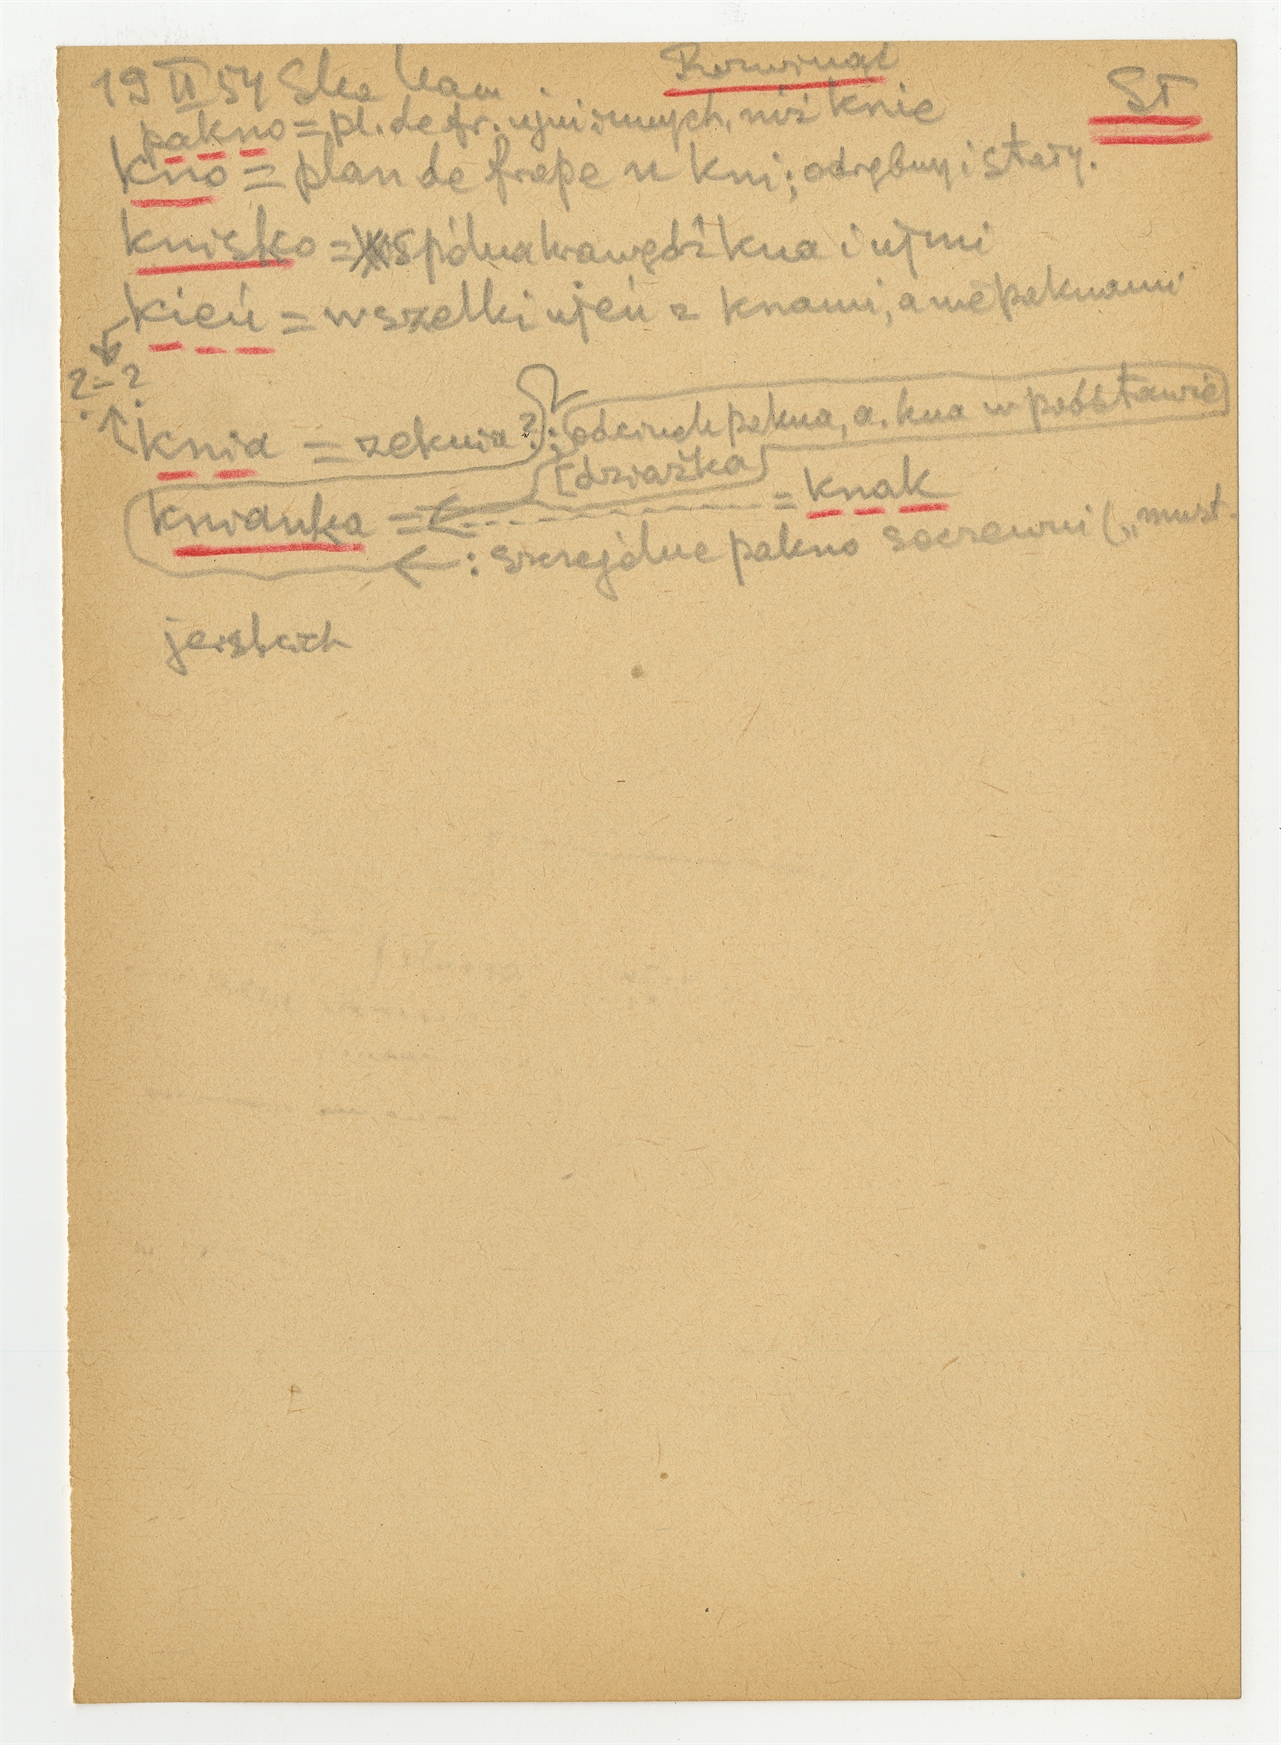 19 II 54 Ska Kam. Rozwinąć ST
pakno = pl. de fr. ujni innych, niż knie
kno = plan de frape u kni; odrębny i stały.
knisko = spólna krawędź kna i ujni
kień = wszelki ujeń z knami, a nie paknami
? - ?
knia = zeknia?; odcinek pakna, a. kna w podstawie
[działka
knianka = = knak
: szczególne pakno soczewni („must-